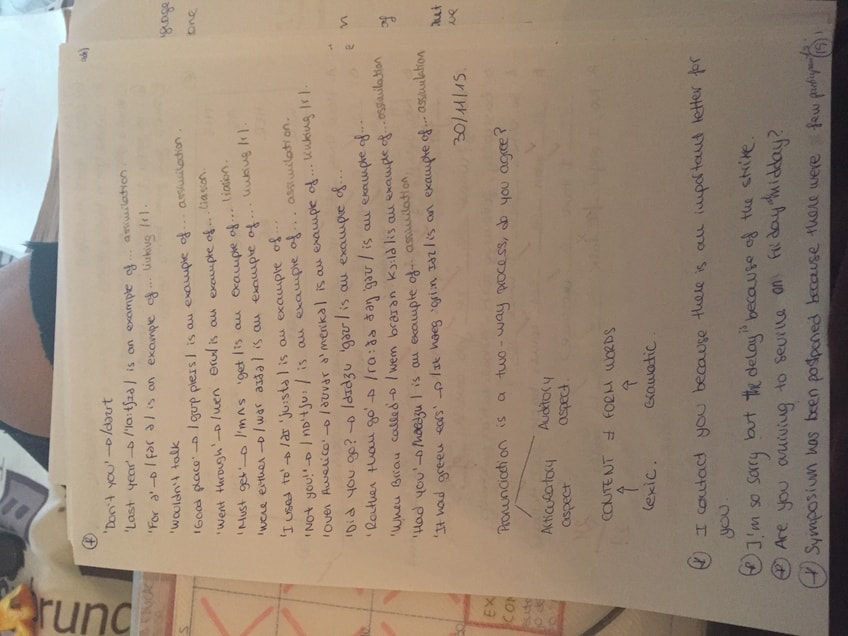 'Don't you' → /dəʊt
'Last year' → /lɑːtʃɪə/ is an example of ... assimilation
'For a' → /fər ə/ is an example of ... linking /r/.
'Wouldn't talk
'Good place' → /gʊp pleɪs/ is an example of ... assimilation.
'Went through' → /wen θru/ is an example of ... liaison.
'Must get' → /'mʌs 'get/ is an example of ... liaison.
'Were either → /wər aɪðə/ is an example of ... linking /r/.
'I used to' → /aɪ 'juːstə/ is an example of ...
'Not you!' → /nɒ'tʃuː/ is an example of ... assimilation.
'Over America' → /əʊvər ə'merikə/ is an example of ... linking /r/.
'Did you go? → /dɪdʒu 'gəʊ/ is an example of ...
'Rather than go' → /rɑːðə ðəŋ 'gəʊ/ is an example of ...
'When Brian called' → /wem braɪəŋ kɔːld/ is an example of ... assimilation
'Had you' → /hædʒu/ is an example of ... assimilation
'It had green ears' → /ɪk hæg 'griːn ɪəz/ is an example of ... assimilation
30/11/15.
Pronunciation is a two-way process, do you agree?
Articulatory aspect
Auditory aspect
CONTENT ≠ FORM WORDS
↑ ↑
Lexic. Gramatic.
I contact you because there is an important letter for
you
I'm so sorry but the delay is because of the strike.
Are you arriving to Seville on Friday midday?
Symposium has been postponed because there were few
(15)
guage
one
n
of
but
we
EX
CON
runc